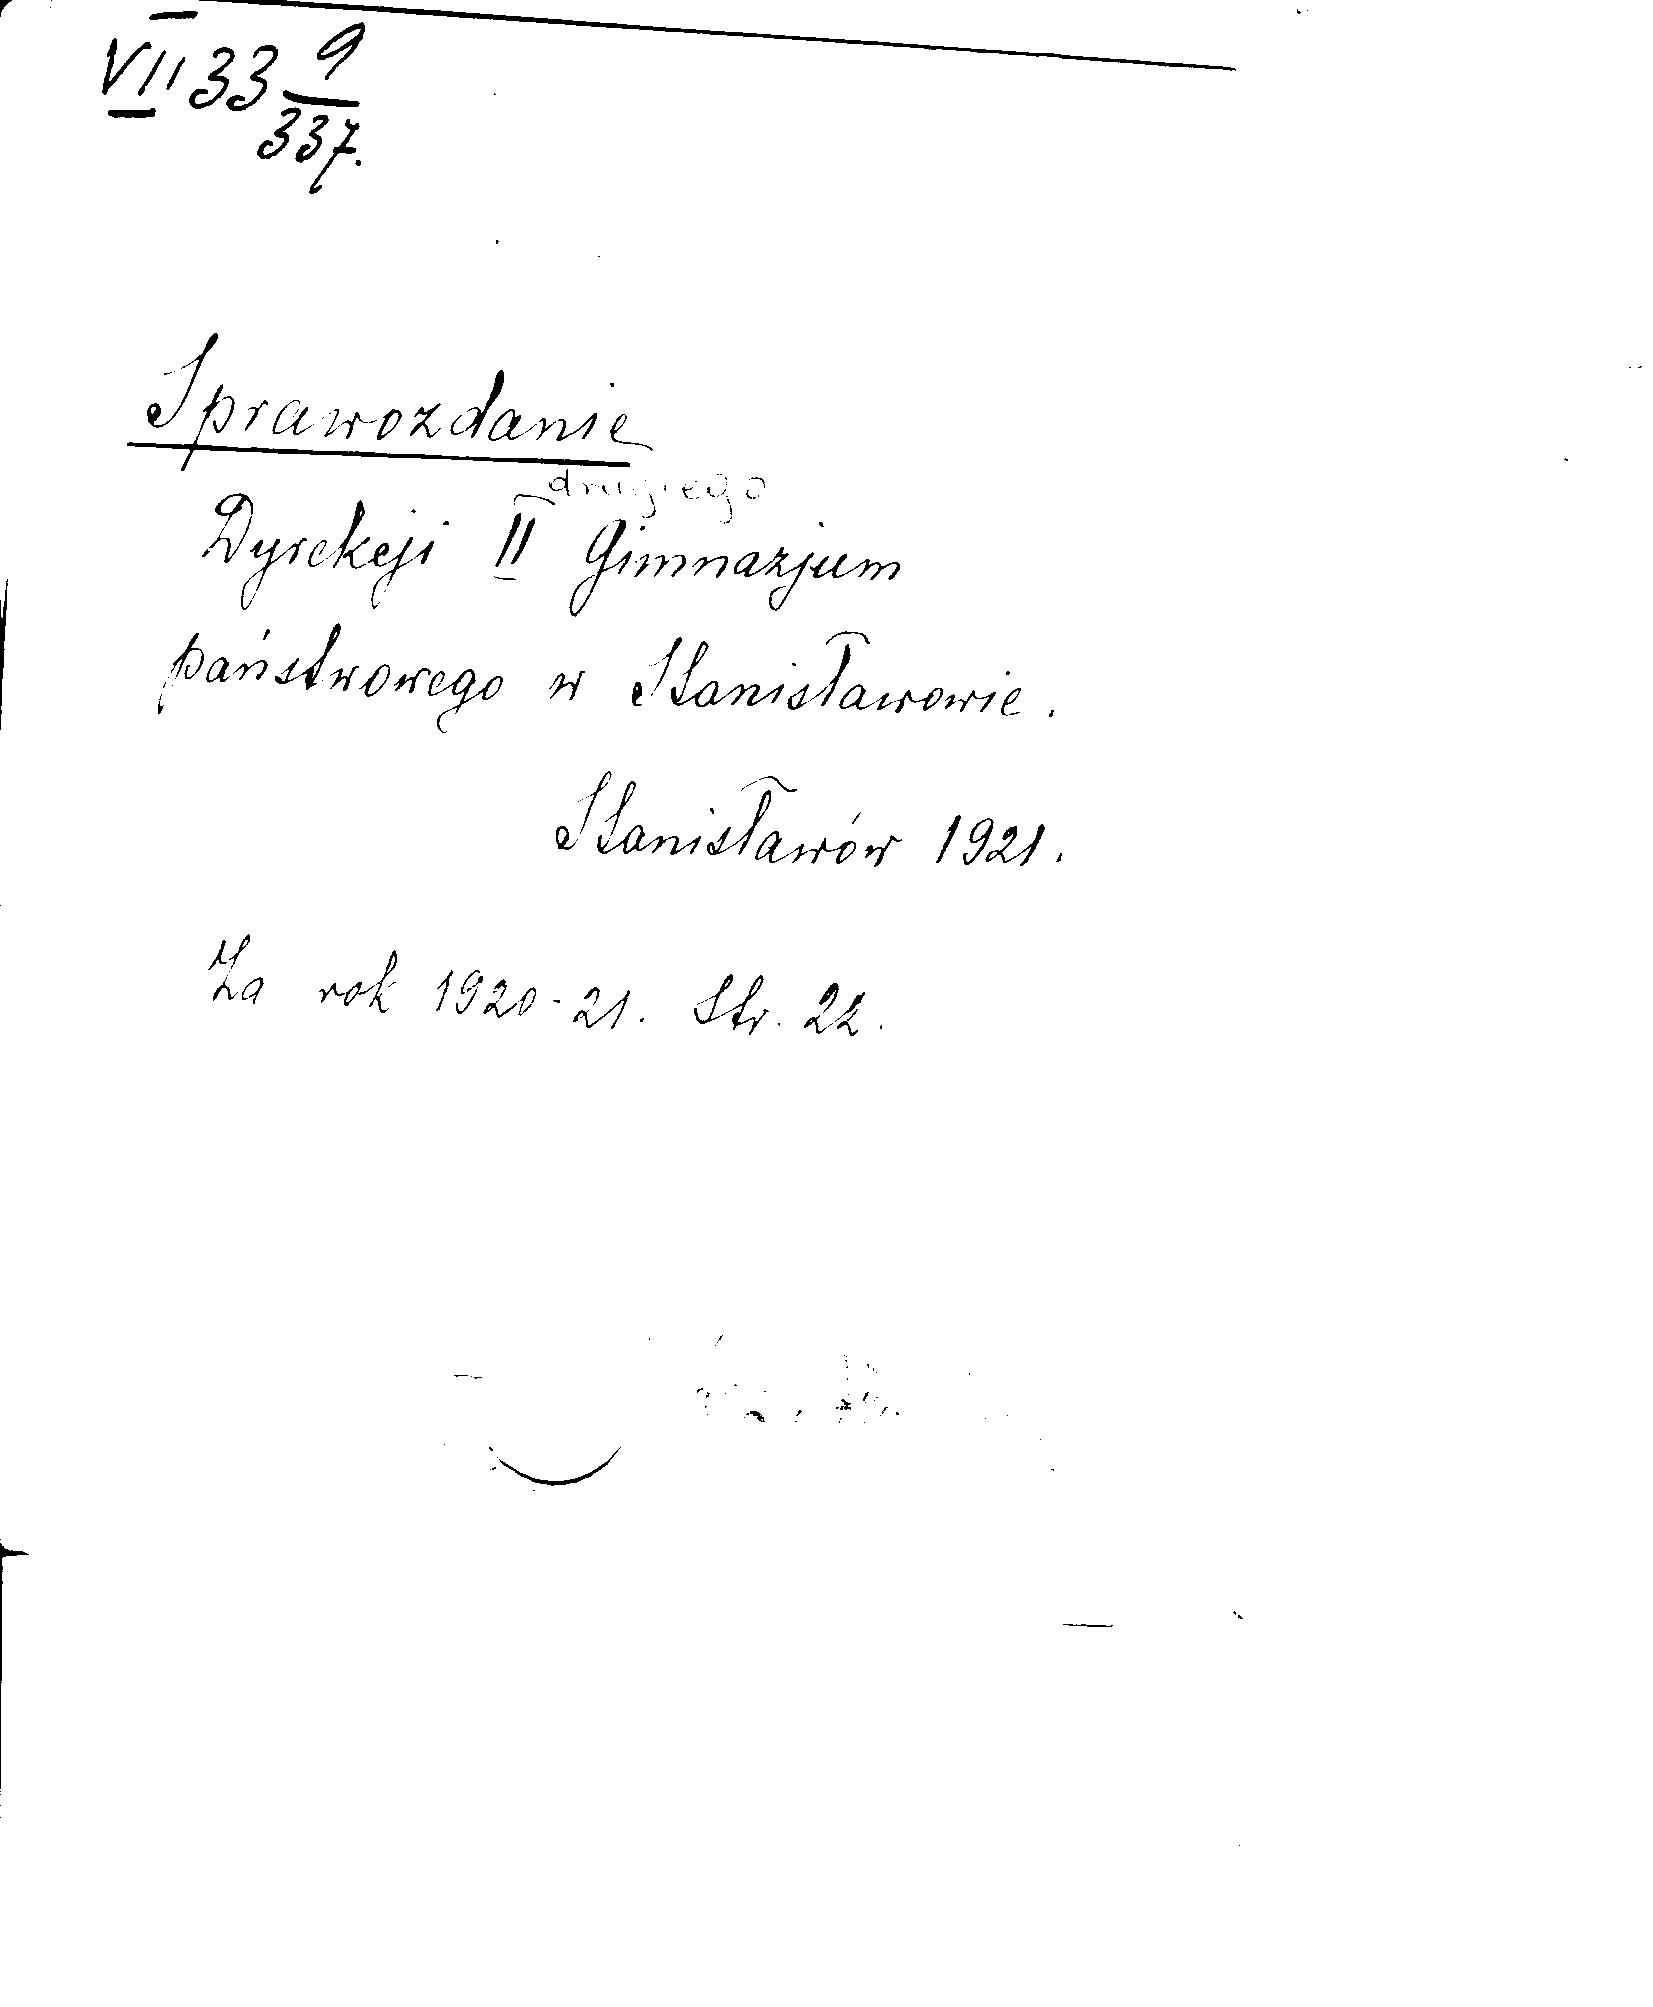 VII 33 9/337.
Sprawozdanie
drugiego
Dyrekcji II Gimnazjum
państwowego w Stanisławowie.
Stanisławów 1921.
Za rok 1920-21. Str. 22.